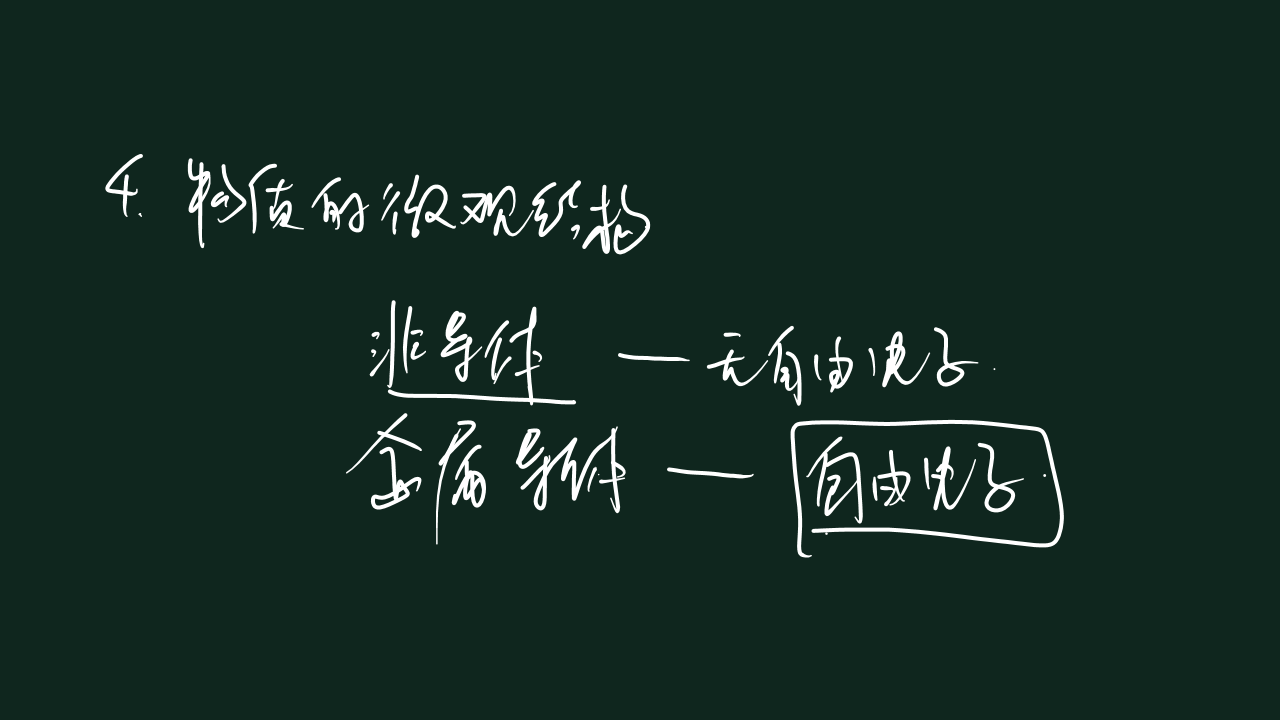 4. 物质的微观结构
非导体 — 无自由电子
金属导体 — 自由电子